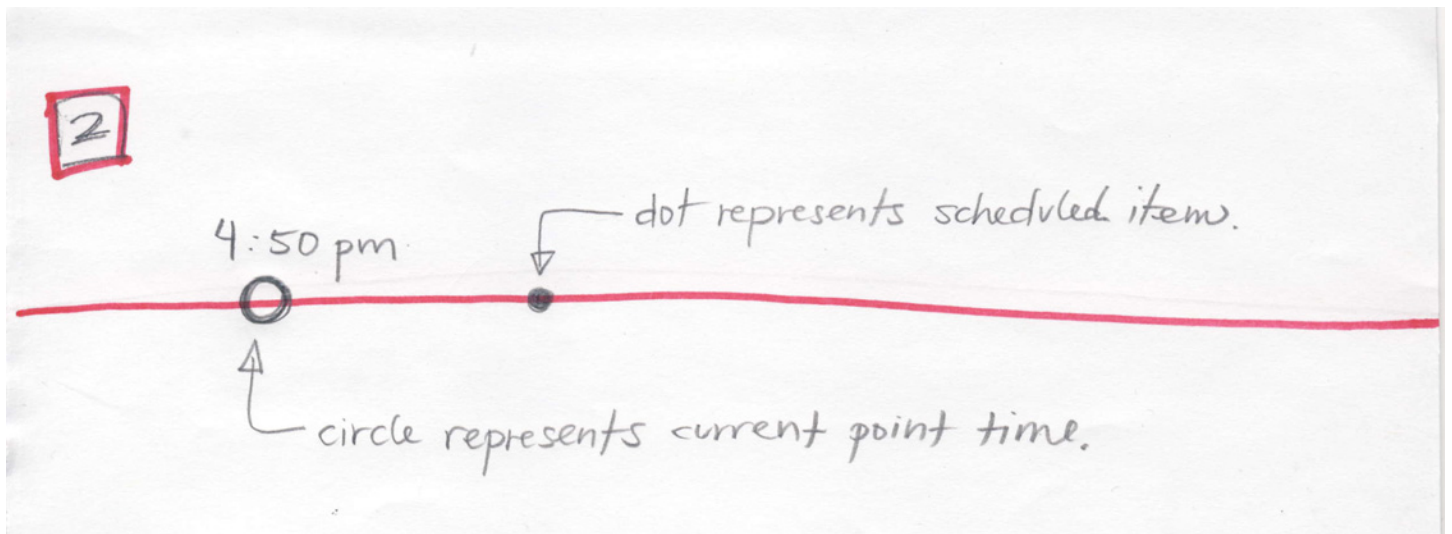 2
dot represents scheduled item.
4:50 pm
circle represents current point time.